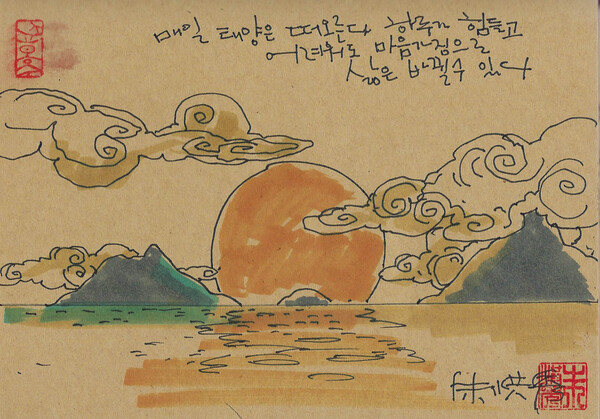 매일 태양은 떠오른다 하루가 힘들고
어려워도 마음가짐으로
삶은 바뀔수 있다